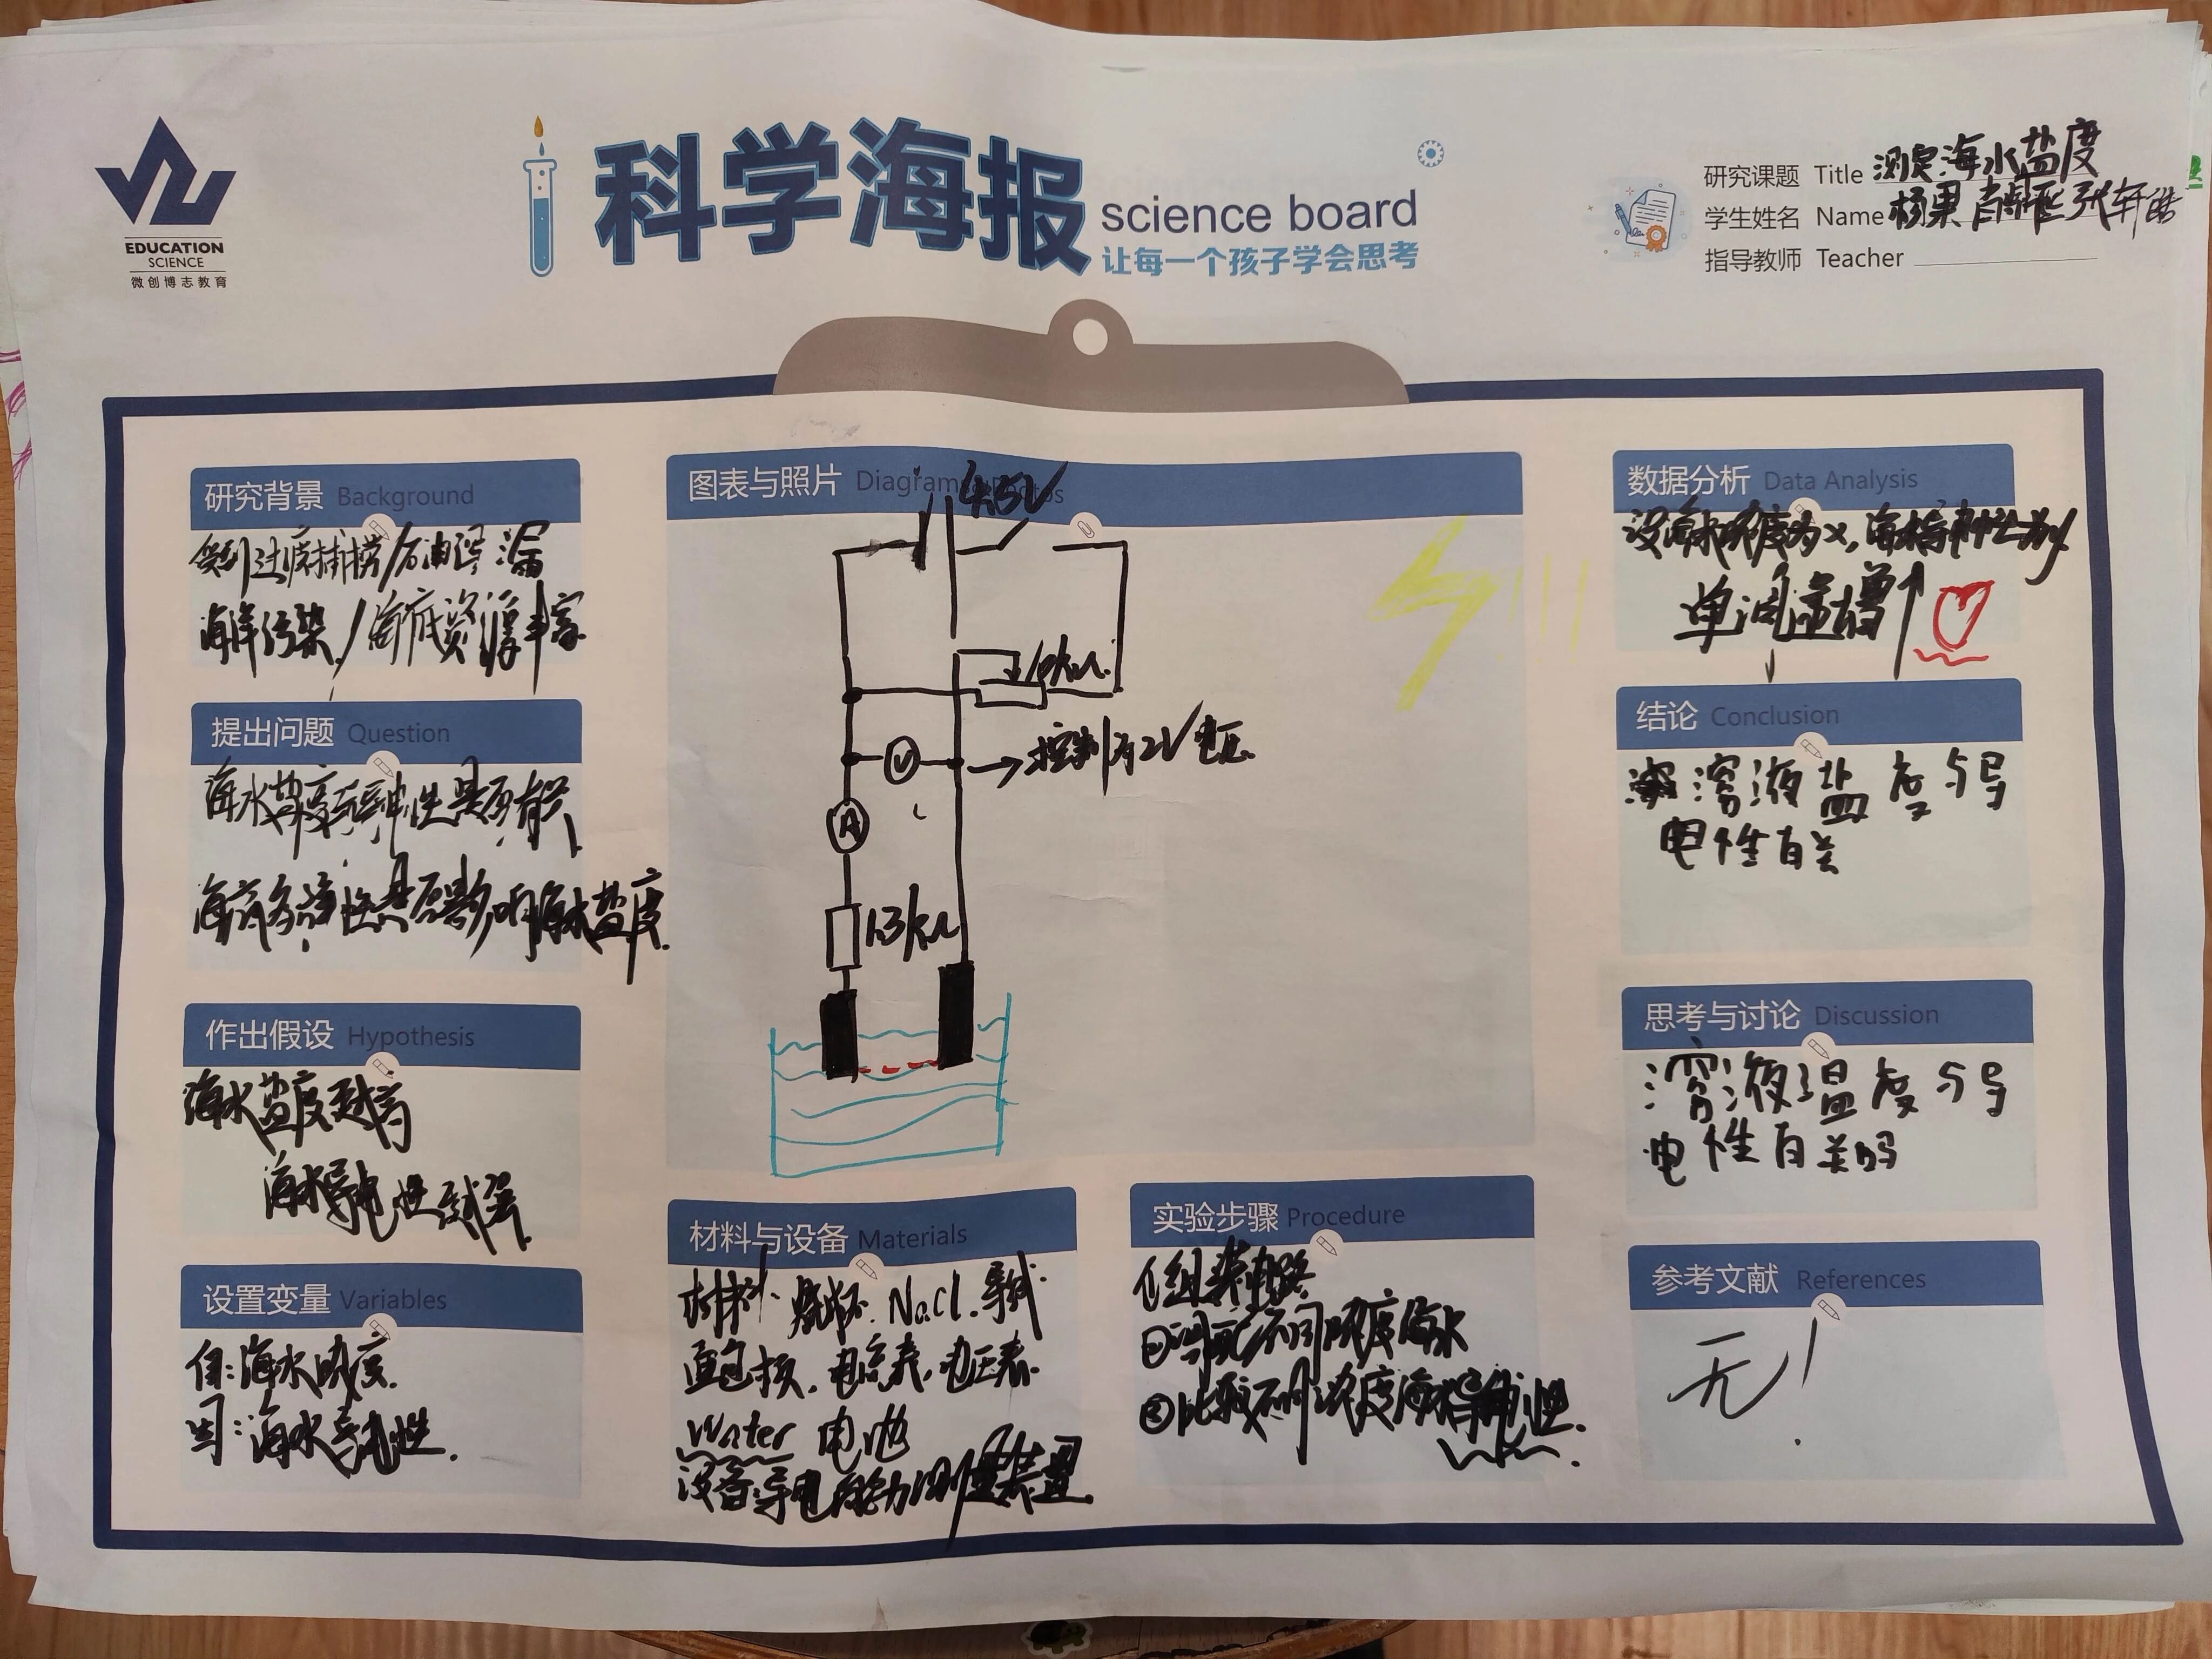 EDUCATION
SCIENCE
微创博志教育
科学海报
science board
让每一个孩子学会思考
研究课题 Title 测定海水盐度
学生姓名 Name 杨果 张轩皓
指导教师 Teacher
研究背景 Background
受到过度捕捞/石油泄漏
海洋污染/海底资源丰富
提出问题 Question
海水盐度与导电性是否有关
是否影响海水盐度.
作出假设 Hypothesis
海水盐度越高
海水导电性越强
设置变量 Variables
自:海水浓度.
因:海水导电性.
图表与照片 Diagram
4.5V
10kΩ
V
→控制为2V电压.
A
1.3kΩ
材料与设备 Materials
材料. 烧杯. NaCl. 导线.
面包板. 电流表, 电压表.
Water 电池
设备导电能力测量装置.
实验步骤 Procedure
①组装电路
②调配不同浓度海水
③比较不同浓度海水导电性.
数据分析 Data Analysis
设海水浓度为x, 海水导电性为y
单调递增↑
结论 Conclusion
溶液盐度与导
电性有关
思考与讨论 Discussion
溶液温度与导
电性有关吗
参考文献 References
无!